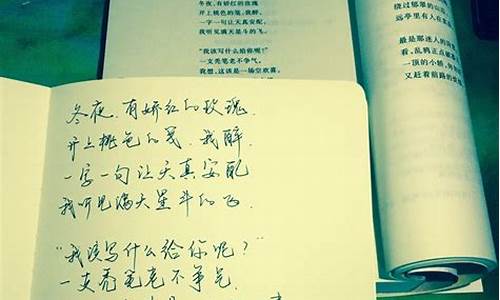 冬夜,有娇红的玫瑰
开上桃色的笺,我醉,
一字一句让天真安配,
我听见满天星斗的飞。
“我该写什么给你呢?”
一支秃笔老不争气,
我想,这该是一场空欢喜,
绕过郁翠的山
远亭里有人在
最是那迷人的
看,乱鸦正点破
一顶的小轿,
又赶着前路的
冬夜,有娇红的玫瑰,
开上桃色的笺,我醉,
一字一句让天真安配
我听见满天星斗的飞.
“我该写什么给你呢?”
一支秃笔老不争气.